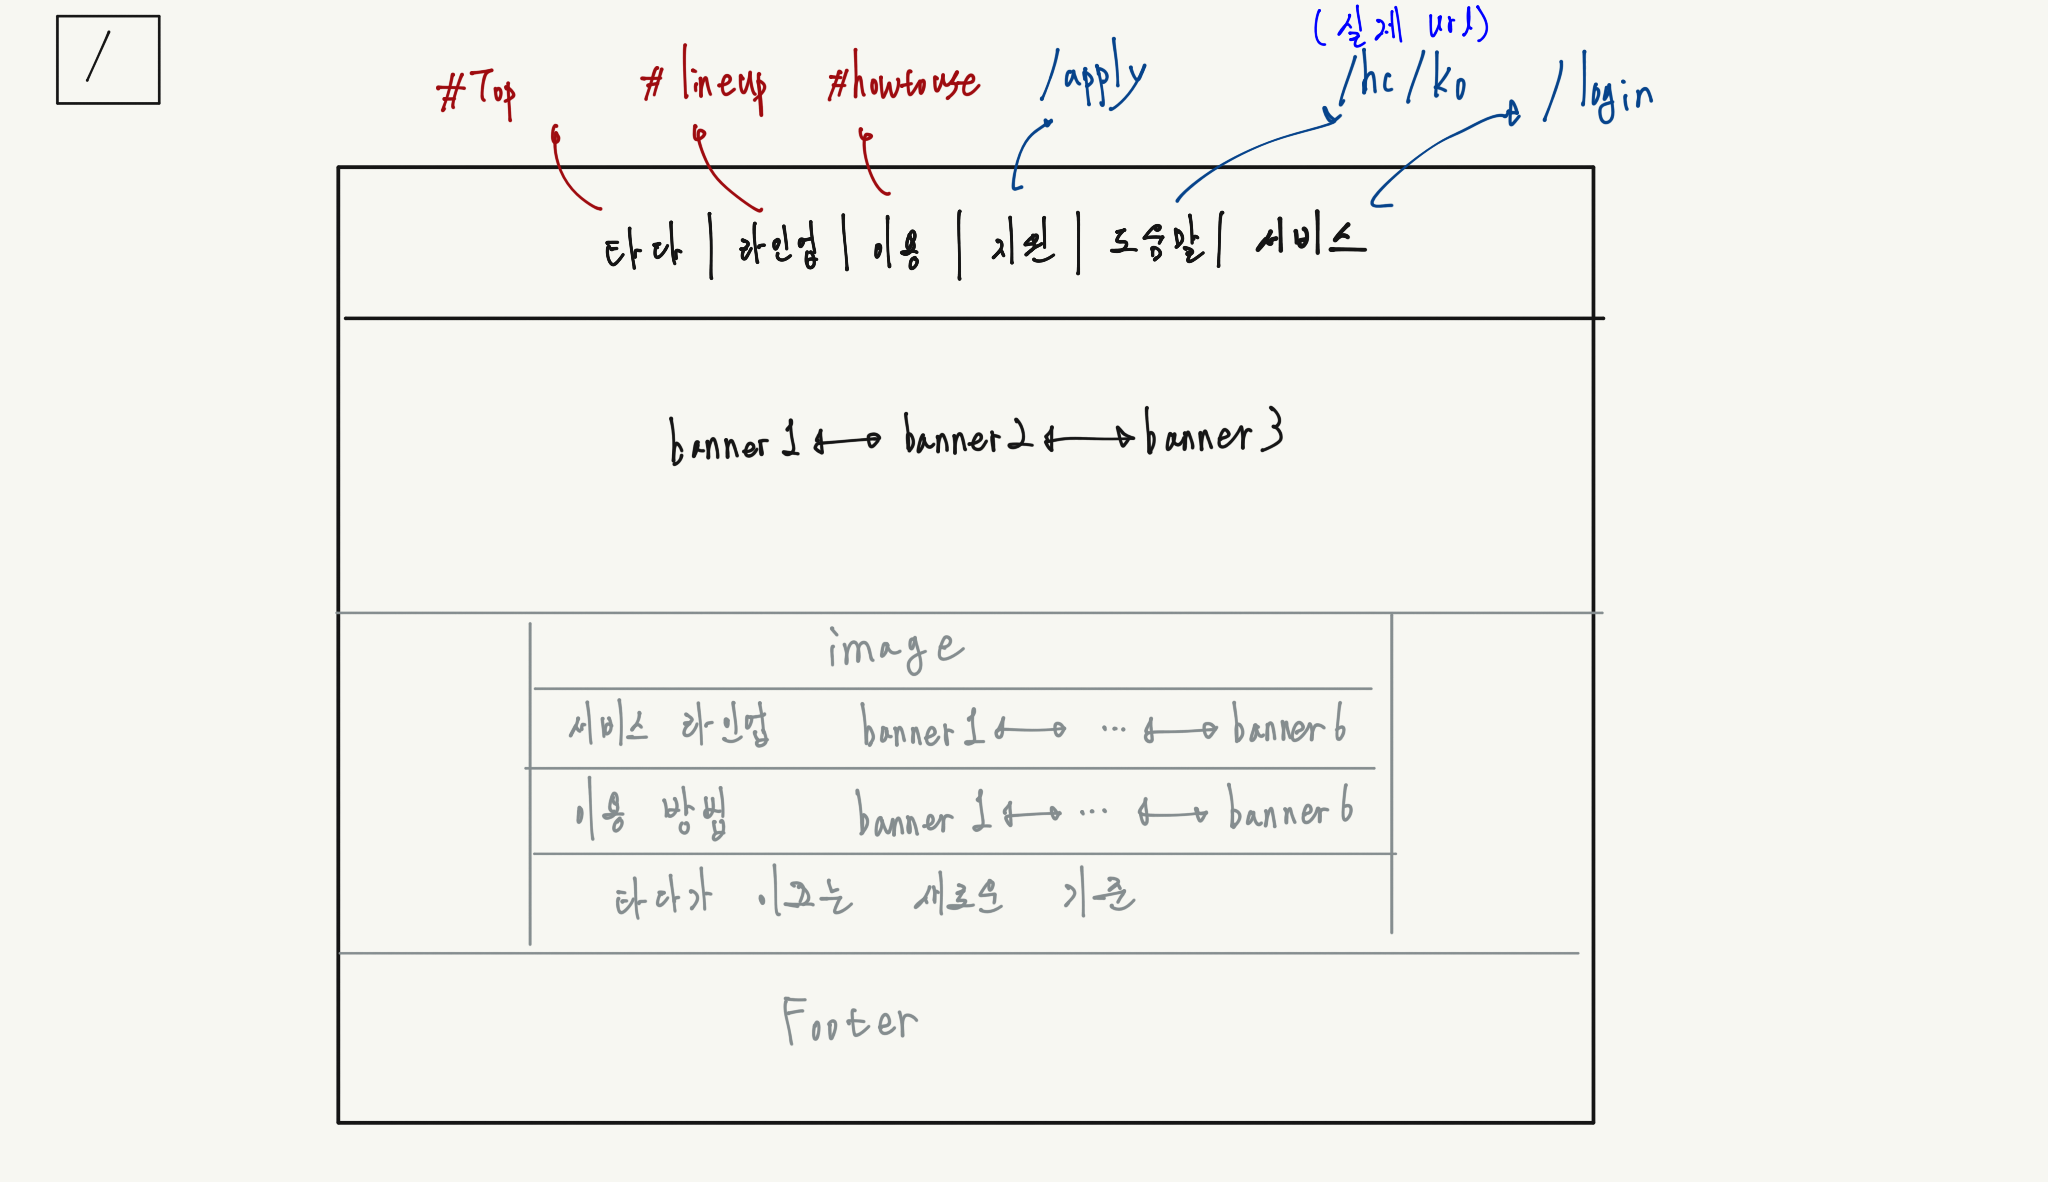 /
(실제 url)
#Top #lineup #howtouse /apply /hc/ko /login
타다 | 라인업 | 이용 | 지원 | 도움말 | 서비스
banner1 banner2 banner3
image
서비스 라인업 banner1 ... banner6
이용 방법 banner1 ... banner6
타다가 이끄는 새로운 기준
Footer